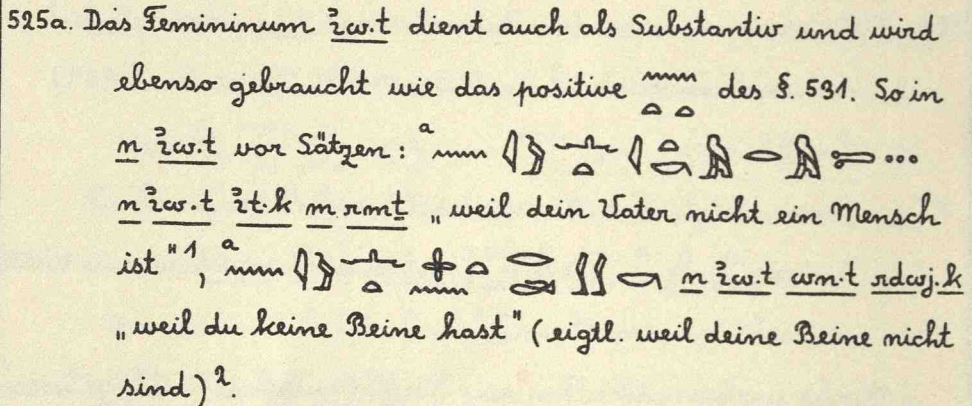 525a. Das Femininum ỉw.t dient auch als Substantiv und wird
ebenso gebraucht wie das positive 𓈖𓏏𓏏 des §. 531. So in
n ỉw.t vor Sätzen: a 𓈖𓇋𓅱𓂜𓏏𓇋𓏏𓎡𓅓𓂋𓅓𓍿...
n ỉw.t ỉt.k m rmṯ „weil dein Vater nicht ein Mensch
ist"1, a 𓈖𓇋𓅱𓂜𓏏𓇬𓈖𓏏𓂋𓂧𓂾𓂾𓎡 n ỉw.t wn.t rdwj.k
„weil du keine Beine hast" (eigtl. weil deine Beine nicht
sind)2.